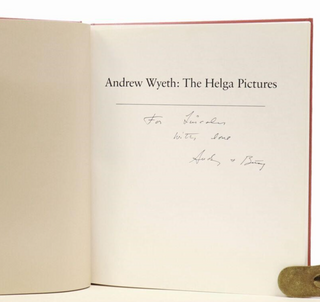 Andrew Wyeth: The Helga Pictures
For Lincoln
with love
Andy + Betsy